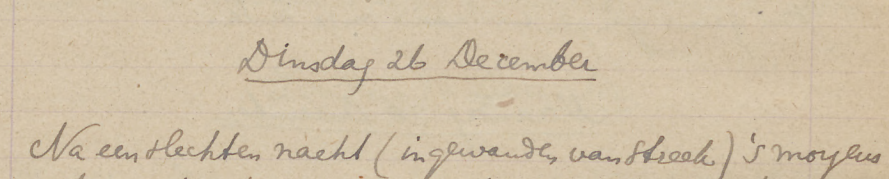 Dinsdag 26 December
Na een slechten nacht (ingewanden van streek) 's morgens